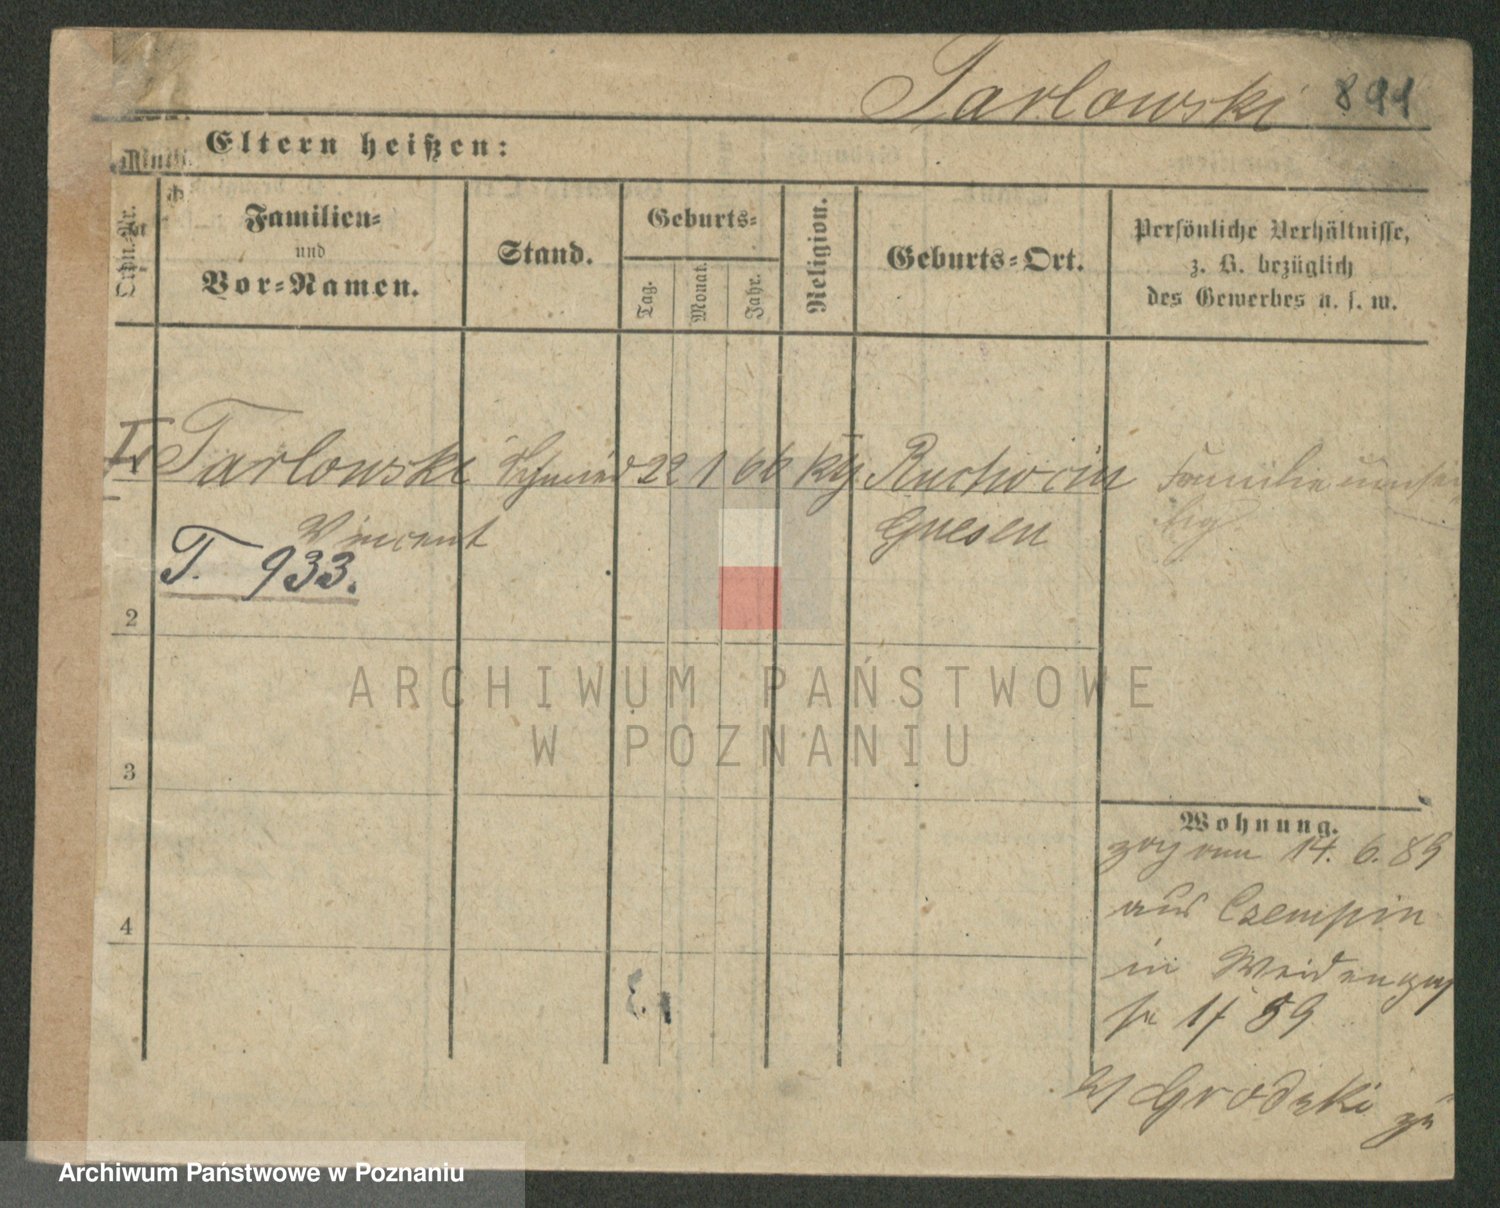 Tarlowski 891
Eltern heißen:
Familien=
und
Vor=Namen.
Stand.
Geburts=
Tag.
Monat.
Jahr.
Religion.
Geburts=Ort.
Persönliche Verhältnisse,
z. B. bezüglich
des Gewerbes u. s. w.
Tarlowski Schmied 22 1 66 kg. Ruchocin Familie
Vincent Gnesen
T. 933.
2
3
4
Wohnung.
zog von 14. 6. 89
aus Czempin
in
89
Grodzki zu
ARCHIWUM PAŃSTWOWE
W POZNANIU
Archiwum Państwowe w Poznaniu